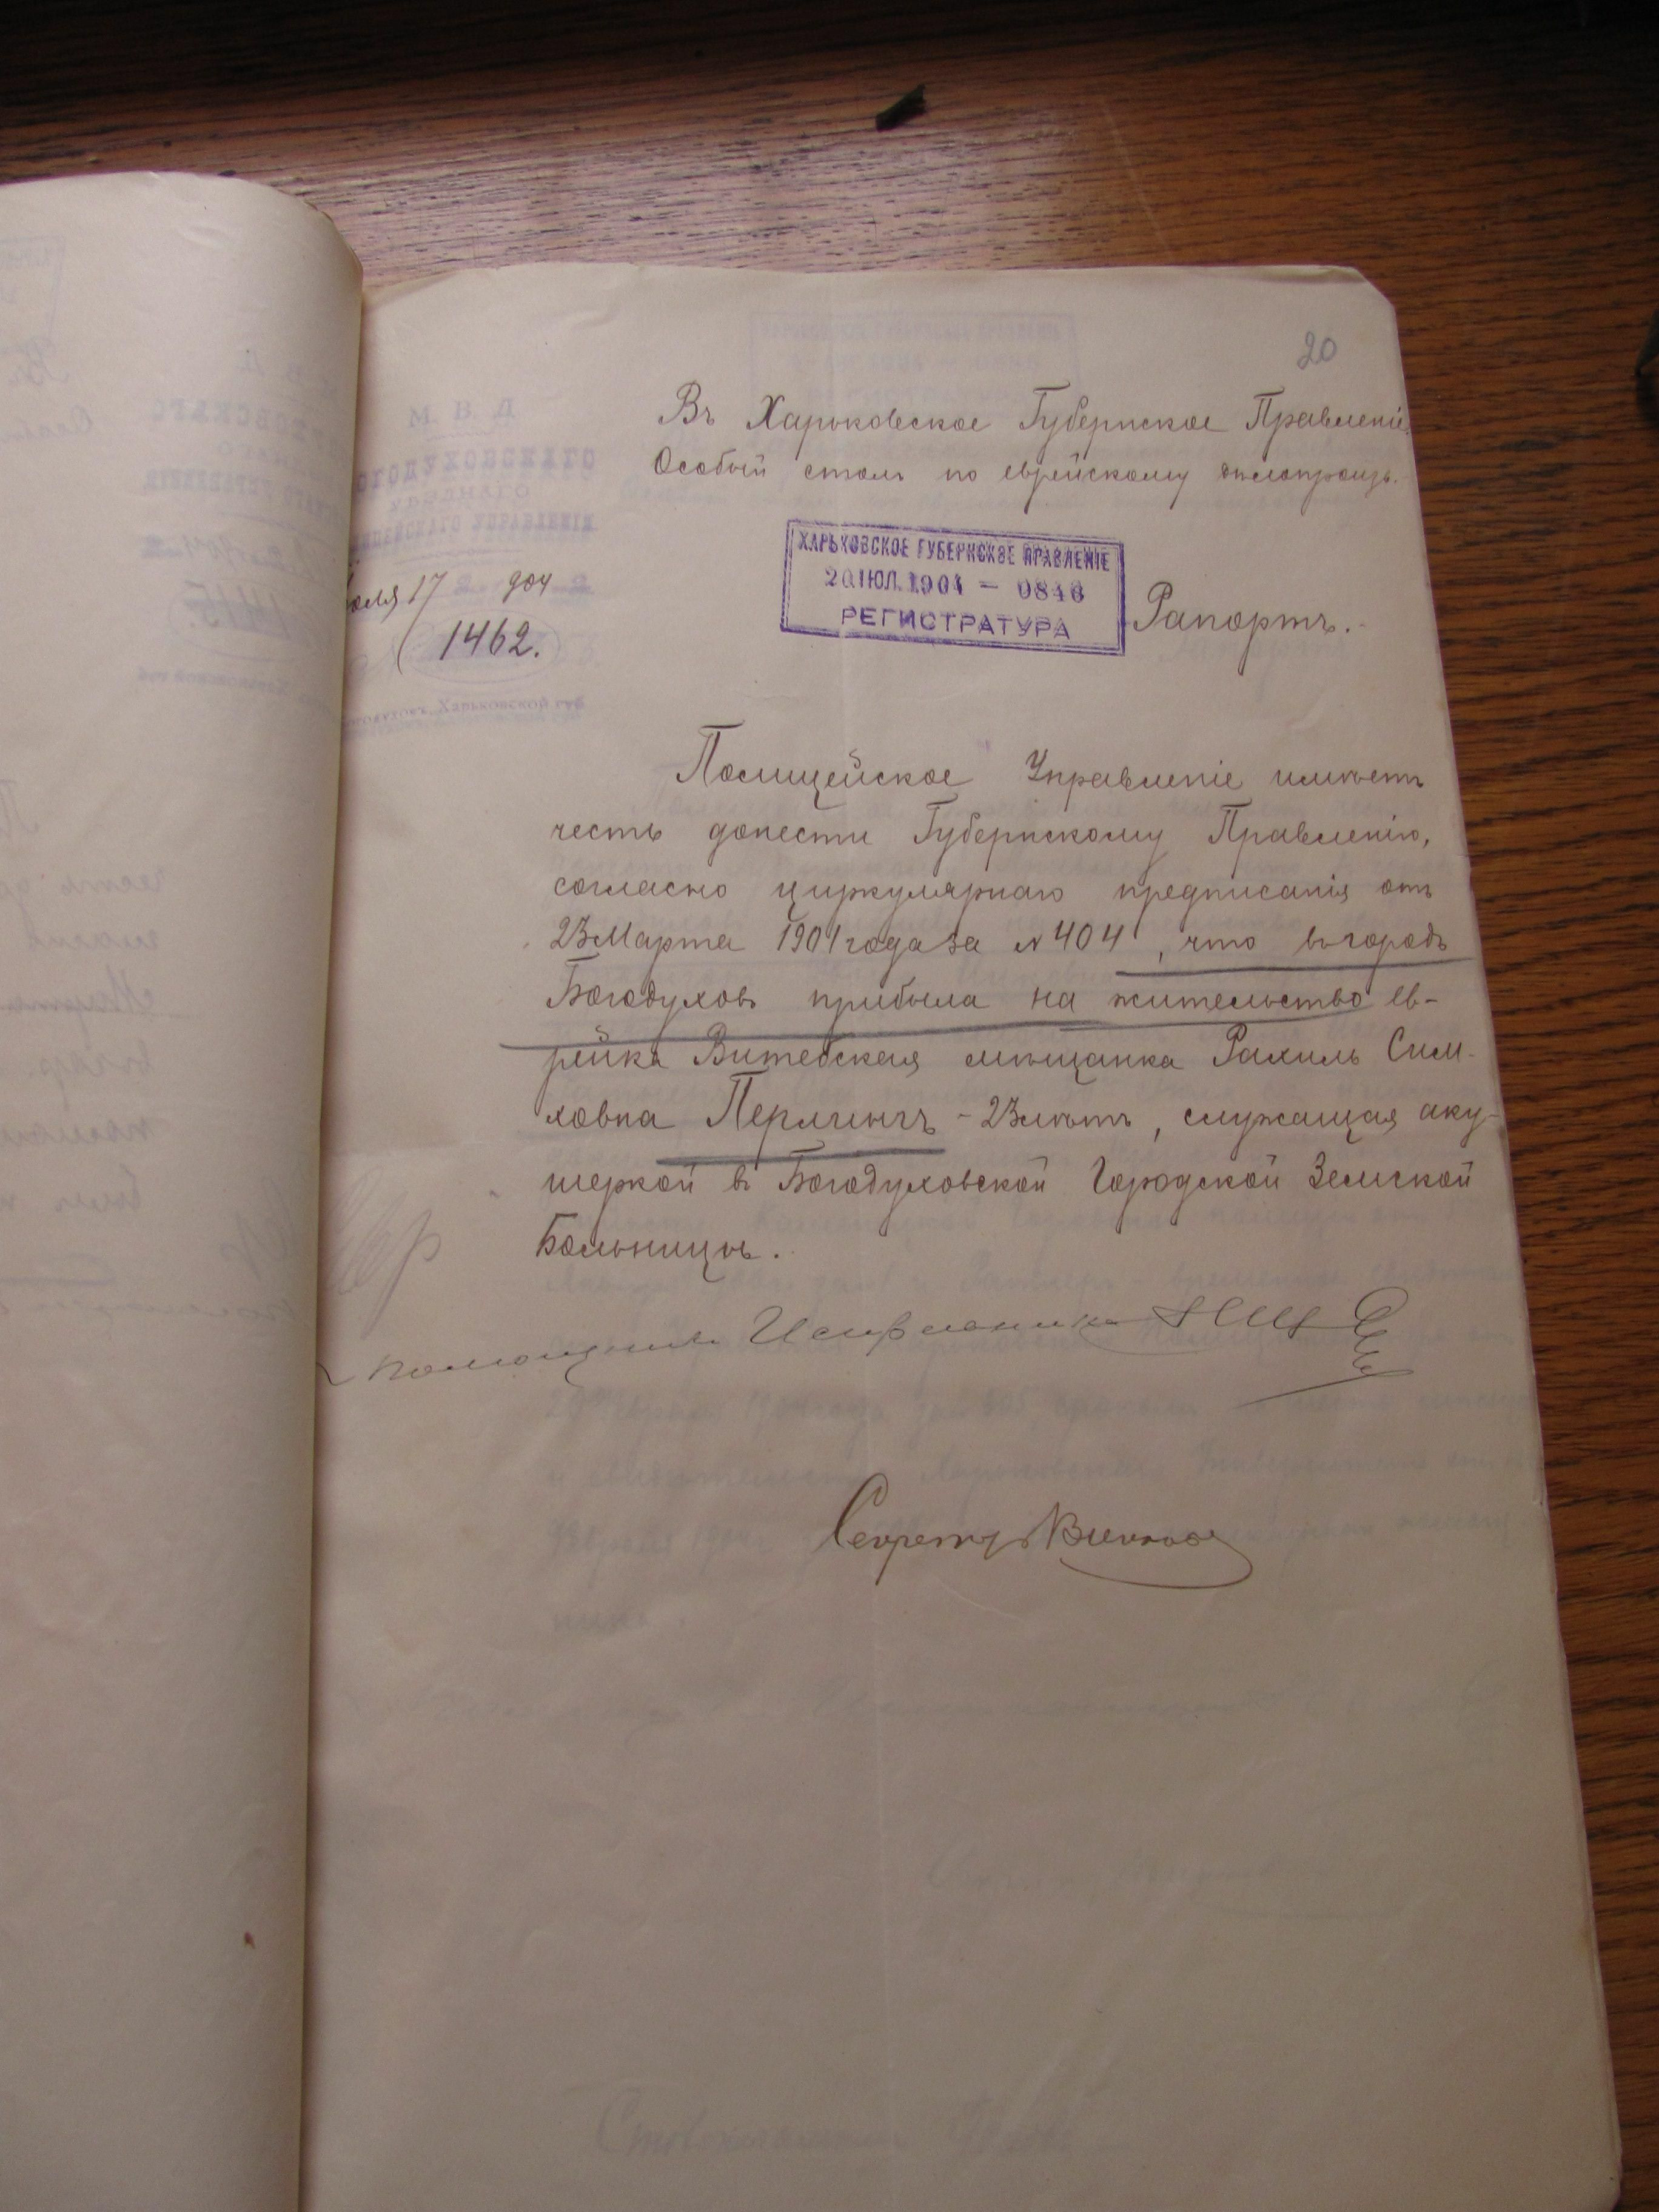 20
Въ Харьковское Губернское Правленіе
Особый столъ по еврейскому дѣлопроизв.
М. В. Д
ОГОДУХОВСКАГО
УѢЗДНАГО
ЛИЦЕЙСКАГО УПРАВЛЕНІЯ
юля 17 904
1462.
Харьковской губ
ХАРЬКОВСКОЕ ГУБЕРНСКОЕ ПРАВЛЕНІЕ
20 ІЮЛ. 1904 — 0846
РЕГИСТРАТУРА
Рапортъ.
Полицейское Управленіе имѣетъ
честь донести Губернскому Правленію,
согласно циркулярнаго предписанія отъ
23 Марта 1901 года за № 404, что въ городъ
Богодуховъ прибыла на жительство ев-
рейка Витебская мѣщанка Рахиль Сим-
ховна Перлинъ - 23 лѣтъ, служащая аку-
шеркой въ Богодуховской Городской Земской
Больницѣ.
Помощникъ Исправника
Секретарь